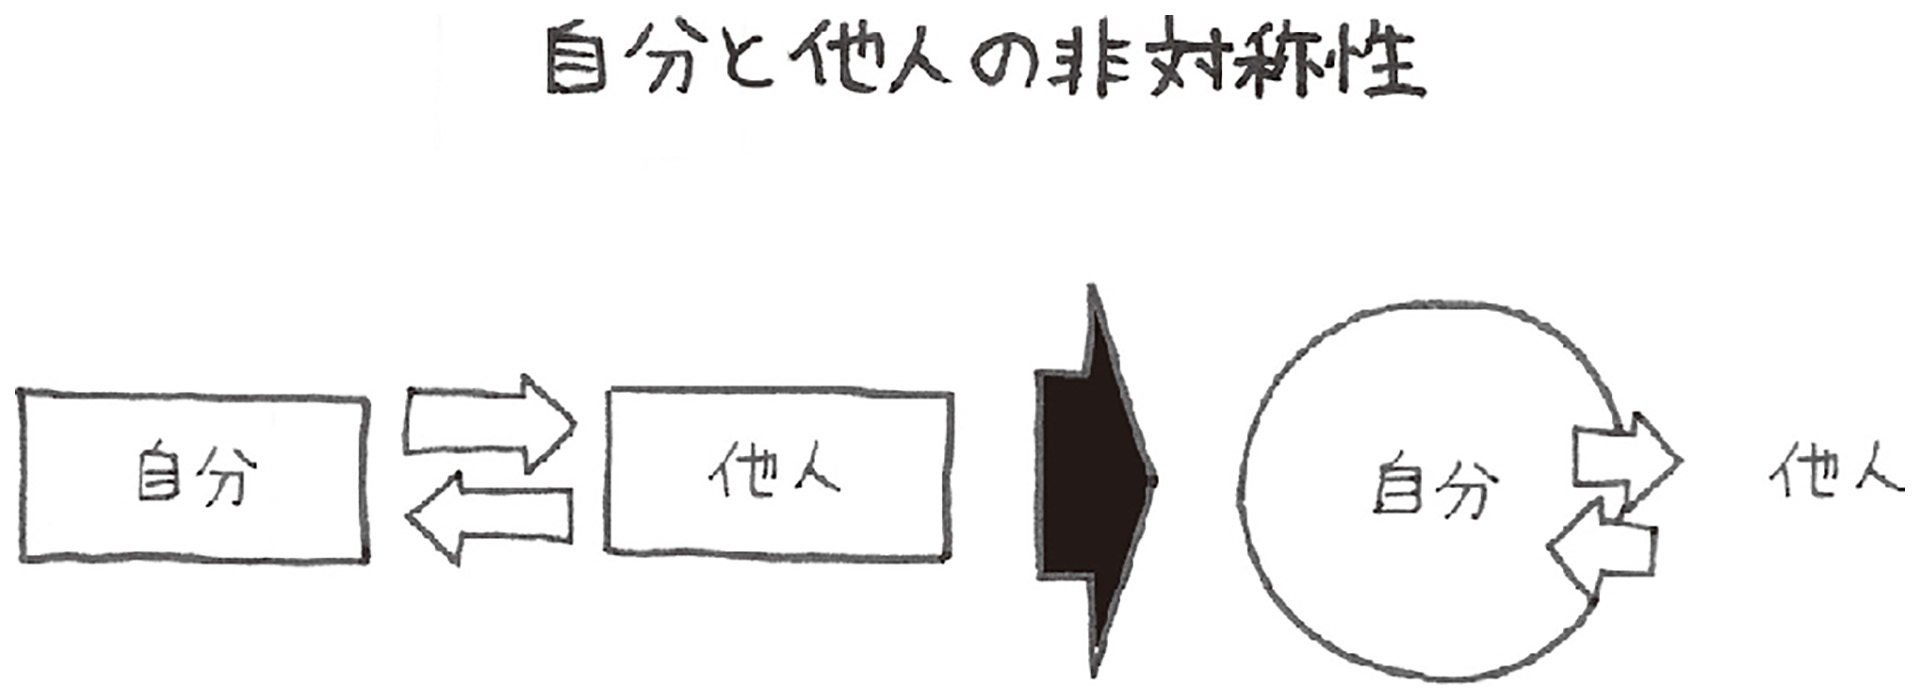 自分と他人の非対称性
自分
他人
自分
他人